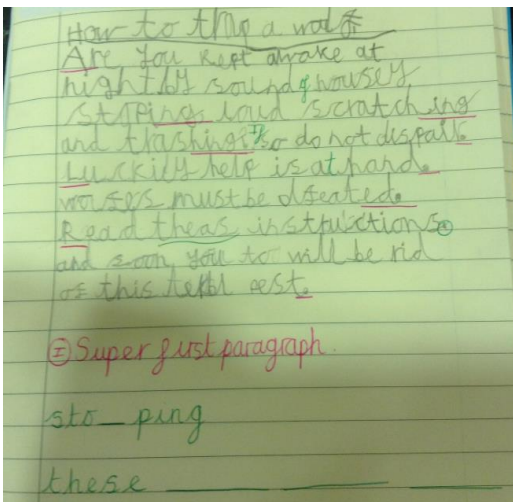 How to trap a wolf.
Are you kept awake at
night by sound of housey
stping loud scratching
and trashing? If so do not dispair.
Luckily help is at hand.
wolfs must be dfeated.
Read theas instructions
and soon you to will be rid
of this pest.
I Super first paragraph.
sto_ping
these